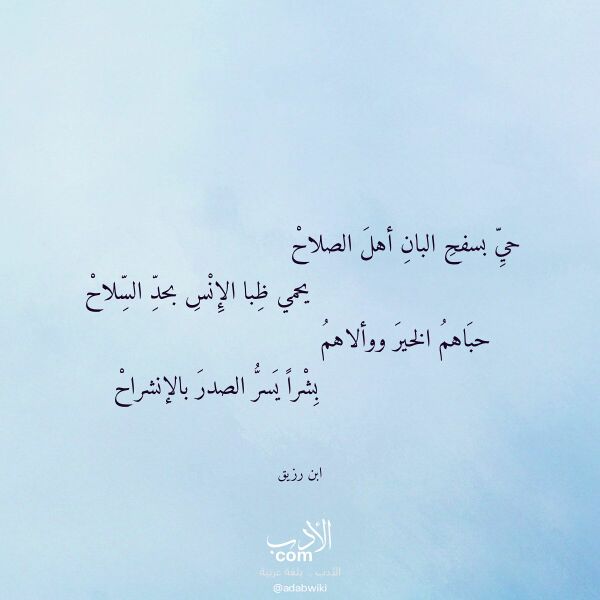 حيِّ بسفحِ البانِ أهلَ الصلاحْ
يحمي ظِبا الإِنْسِ بحدِّ السِّلاحْ
حبَاهمُ الخيرَ ووألاهمُ
بِشْراً يَسرُّ الصدرَ بالإنشراحْ
ابن رزيق
الأدب
com
الأدب .. بلغة عربية
@adabwiki